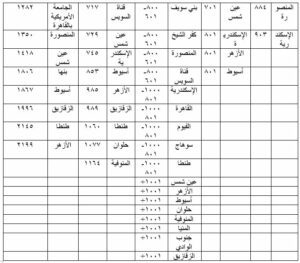 المنصورة ٨٨٤ عين شمس ٧٠١ بني سويف ٨٠٠-٦٠١ قناة السويس ٧١٧ الجامعة الامريكية بالقاهرة ١٢٨٢
الإسكندرية ٩٠٣ الإسكندرية كفر الشيخ ٨٠٠-٦٠١ عين شمس ٧٢٩ المنصورة ١٣٥٠
الأزهر المنصورة ٨٠٠-٦٠١ الإسكندرية ٧٤٥ عين شمس ١٤١٨
أسيوط ٨٠١ قناة السويس ١٠٠٠-٨٠١ أسيوط ٨٥٣ بنها ١٨٠٦
الإسكندرية ١٠٠٠-٨٠١ الأزهر ٩٨٥ أسيوط ١٨٦٧
القاهرة ١٠٠٠-٨٠١ الزقازيق ٩٨٩ الزقازيق ١٩٩٦
الفيوم ١٠٠٠-٨٠١ طنطا ١٠٦٠ طنطا ٢١٤٥
سوهاج ١٠٠٠-٨٠١ حلوان ١٠٧٧ الأزهر ٢١٩٩
طنطا ١٠٠٠-٨٠١ المنوفية ١١٦٤
عين شمس ١٠٠١+
الأزهر ١٠٠١+
أسيوط ١٠٠١+
حلوان ١٠٠١+
المنوفية ١٠٠١+
المنيا ١٠٠١+
جنوب الوادي ١٠٠١+
الزقازيق ١٠٠١+